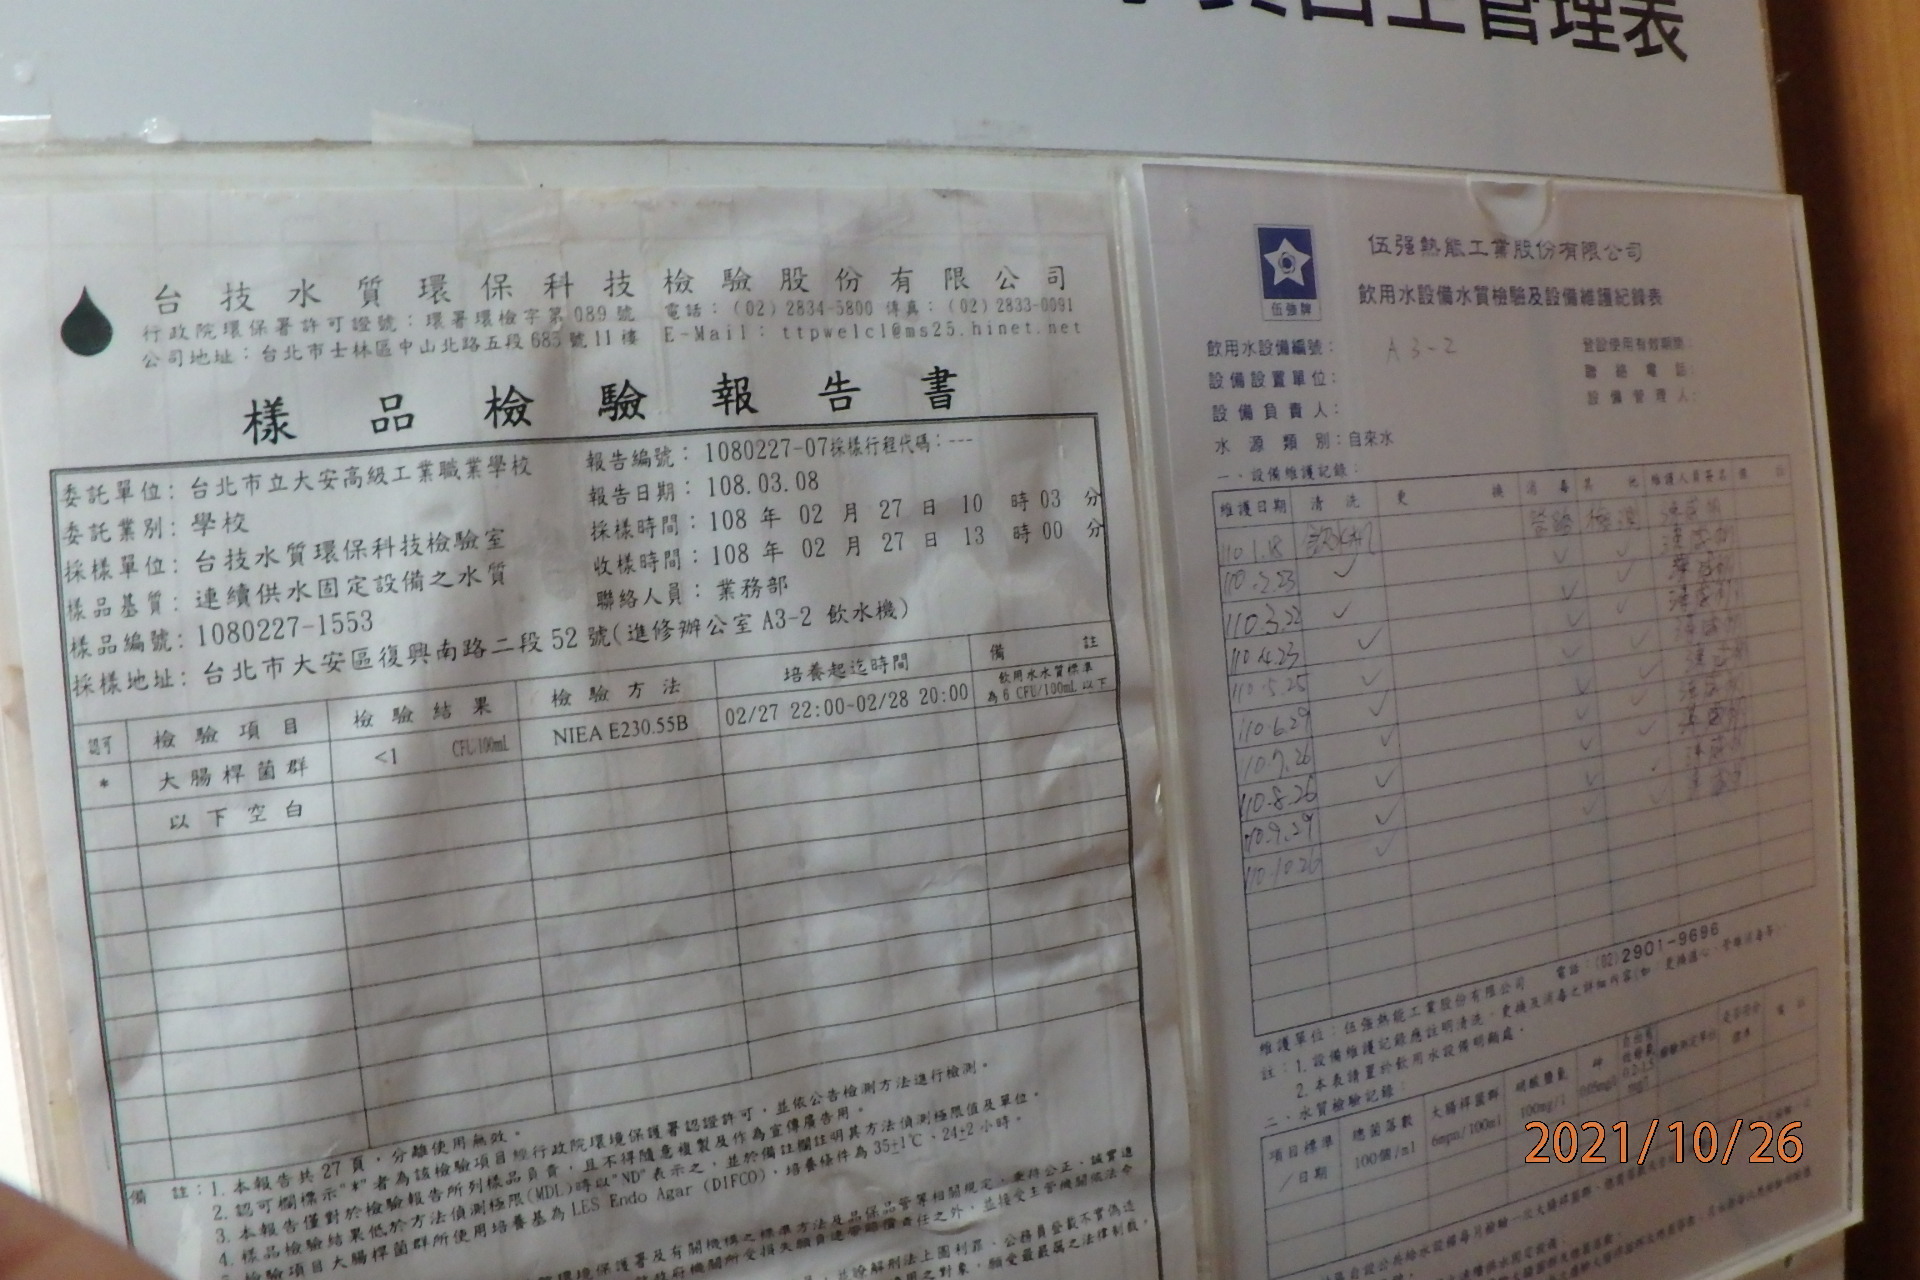 自主管理表
台技水質環保科技檢驗股份有限公司
行政院環保署許可證號：環署環檢字第089號 電話：(02) 2834-5800 傳真：(02) 2833-0091
公司地址：台北市士林區中山北路五段685號11樓 E-Mail： ttpwelcl@ms25.hinet.net
樣品檢驗報告書
委託單位：台北市立大安高級工業職業學校
報告編號：1080227-07採樣行程代碼：---
委託業別：學校
報告日期：108.03.08
採樣單位：台技水質環保科技檢驗室
採樣時間：108 年 02 月 27 日 10 時 03 分
樣品基質：連續供水固定設備之水質
收樣時間：108 年 02 月 27 日 13 時 00 分
樣品編號：1080227-1553
聯絡人員：業務部
採樣地址：台北市大安區復興南路二段52號(進修辦公室A3-2 飲水機)
認可 檢驗項目 檢驗結果 檢驗方法 培養起迄時間 備註
* 大腸桿菌群 <1 CFU/100mL NIEA E230.55B 02/27 22:00~02/28 20:00 飲用水水質標準
為6 CFU/100mL 以下
以下空白
備 註：1. 本報告共27頁，分離使用無效。
2. 認可欄標示"*"者為該檢驗項目經行政院環境保護署認證許可，並依公告檢測方法進行檢測。
3. 本報告僅對於檢驗報告所列樣品負責，且不得隨意複製及作為宣傳廣告用。
4. 樣品檢驗結果低於方法偵測極限(MDL)時以"ND"表示之，並於備註欄註明其方法偵測極限值及單位。
檢驗項目大腸桿菌群所使用培養基為 LES Endo Agar (DIFCO)，培養條件為 35±1℃、24±2 小時。
伍強牌
伍強熱能工業股份有限公司
飲用水設備水質檢驗及設備維護紀錄表
飲用水設備編號： A3-2
登設使用有效期限：
設備設置單位：
聯絡電話：
設備負責人：
設備管理人：
水源類別：自來水
一、設備維護記錄：
維護日期 清洗 更換 消毒 其他 維護人員簽名 備註
110.1.18 飲水機 管路
110.2.23 ✓ ✓ ✓
110.3.22 ✓ ✓ ✓
110.4.23 ✓ ✓ ✓
110.5.25 ✓ ✓ ✓
110.6.29 ✓ ✓ ✓
110.7.26 ✓ ✓ ✓
110.8.26 ✓ ✓ ✓
110.9.29 ✓ ✓
110.10.26 ✓ ✓ ✓
維護單位：伍強熱能工業股份有限公司 電話：(02)2901-9696
註：1. 設備維護記錄應註明清洗、更換及消毒之詳細內容(如：更換濾心、管線消毒等)。
2. 本表請置於飲用水設備明顯處。
二、水質檢驗記錄：
項目標準
/日期
總菌落數
100個/ml
大腸桿菌群
6mpn/100ml
硝酸鹽氮
100mg/l
砷
是否符合
標準
備註
2021/10/26